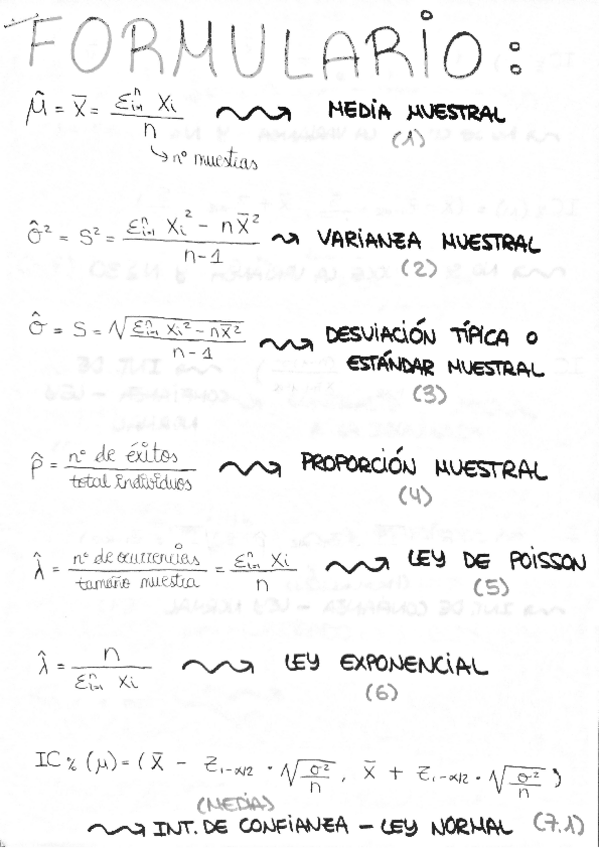 FORMULARIO:
μ̂ = x̄ = Σⁿᵢ₌₁ xi / n ⟿ MEDIA MUESTRAL
(1)
↳ nº muestras
σ̂² = S² = (Σⁿᵢ₌₁ xi² - nx̄²) / (n-1) ⟿ VARIANZA MUESTRAL
(2)
σ̂ = S = √(Σⁿᵢ₌₁ xi² - nx̄²) / (n-1) ⟿ DESVIACIÓN TÍPICA O
ESTÁNDAR MUESTRAL
(3)
p̂ = nº de éxitos / total individuos ⟿ PROPORCIÓN MUESTRAL
(4)
λ̂ = nº de ocurrencias / tamaño muestra = Σⁿᵢ₌₁ xi / n ⟿ LEY DE POISSON
(5)
λ̂ = n / Σⁿᵢ₌₁ xi ⟿ LEY EXPONENCIAL
(6)
IC % (μ) = (x̄ - z₁₋α/₂ · √(σ²/n), x̄ + z₁₋α/₂ · √(σ²/n))
(MEDIA)
⟿ INT. DE CONFIANZA - LEY NORMAL (7.1)